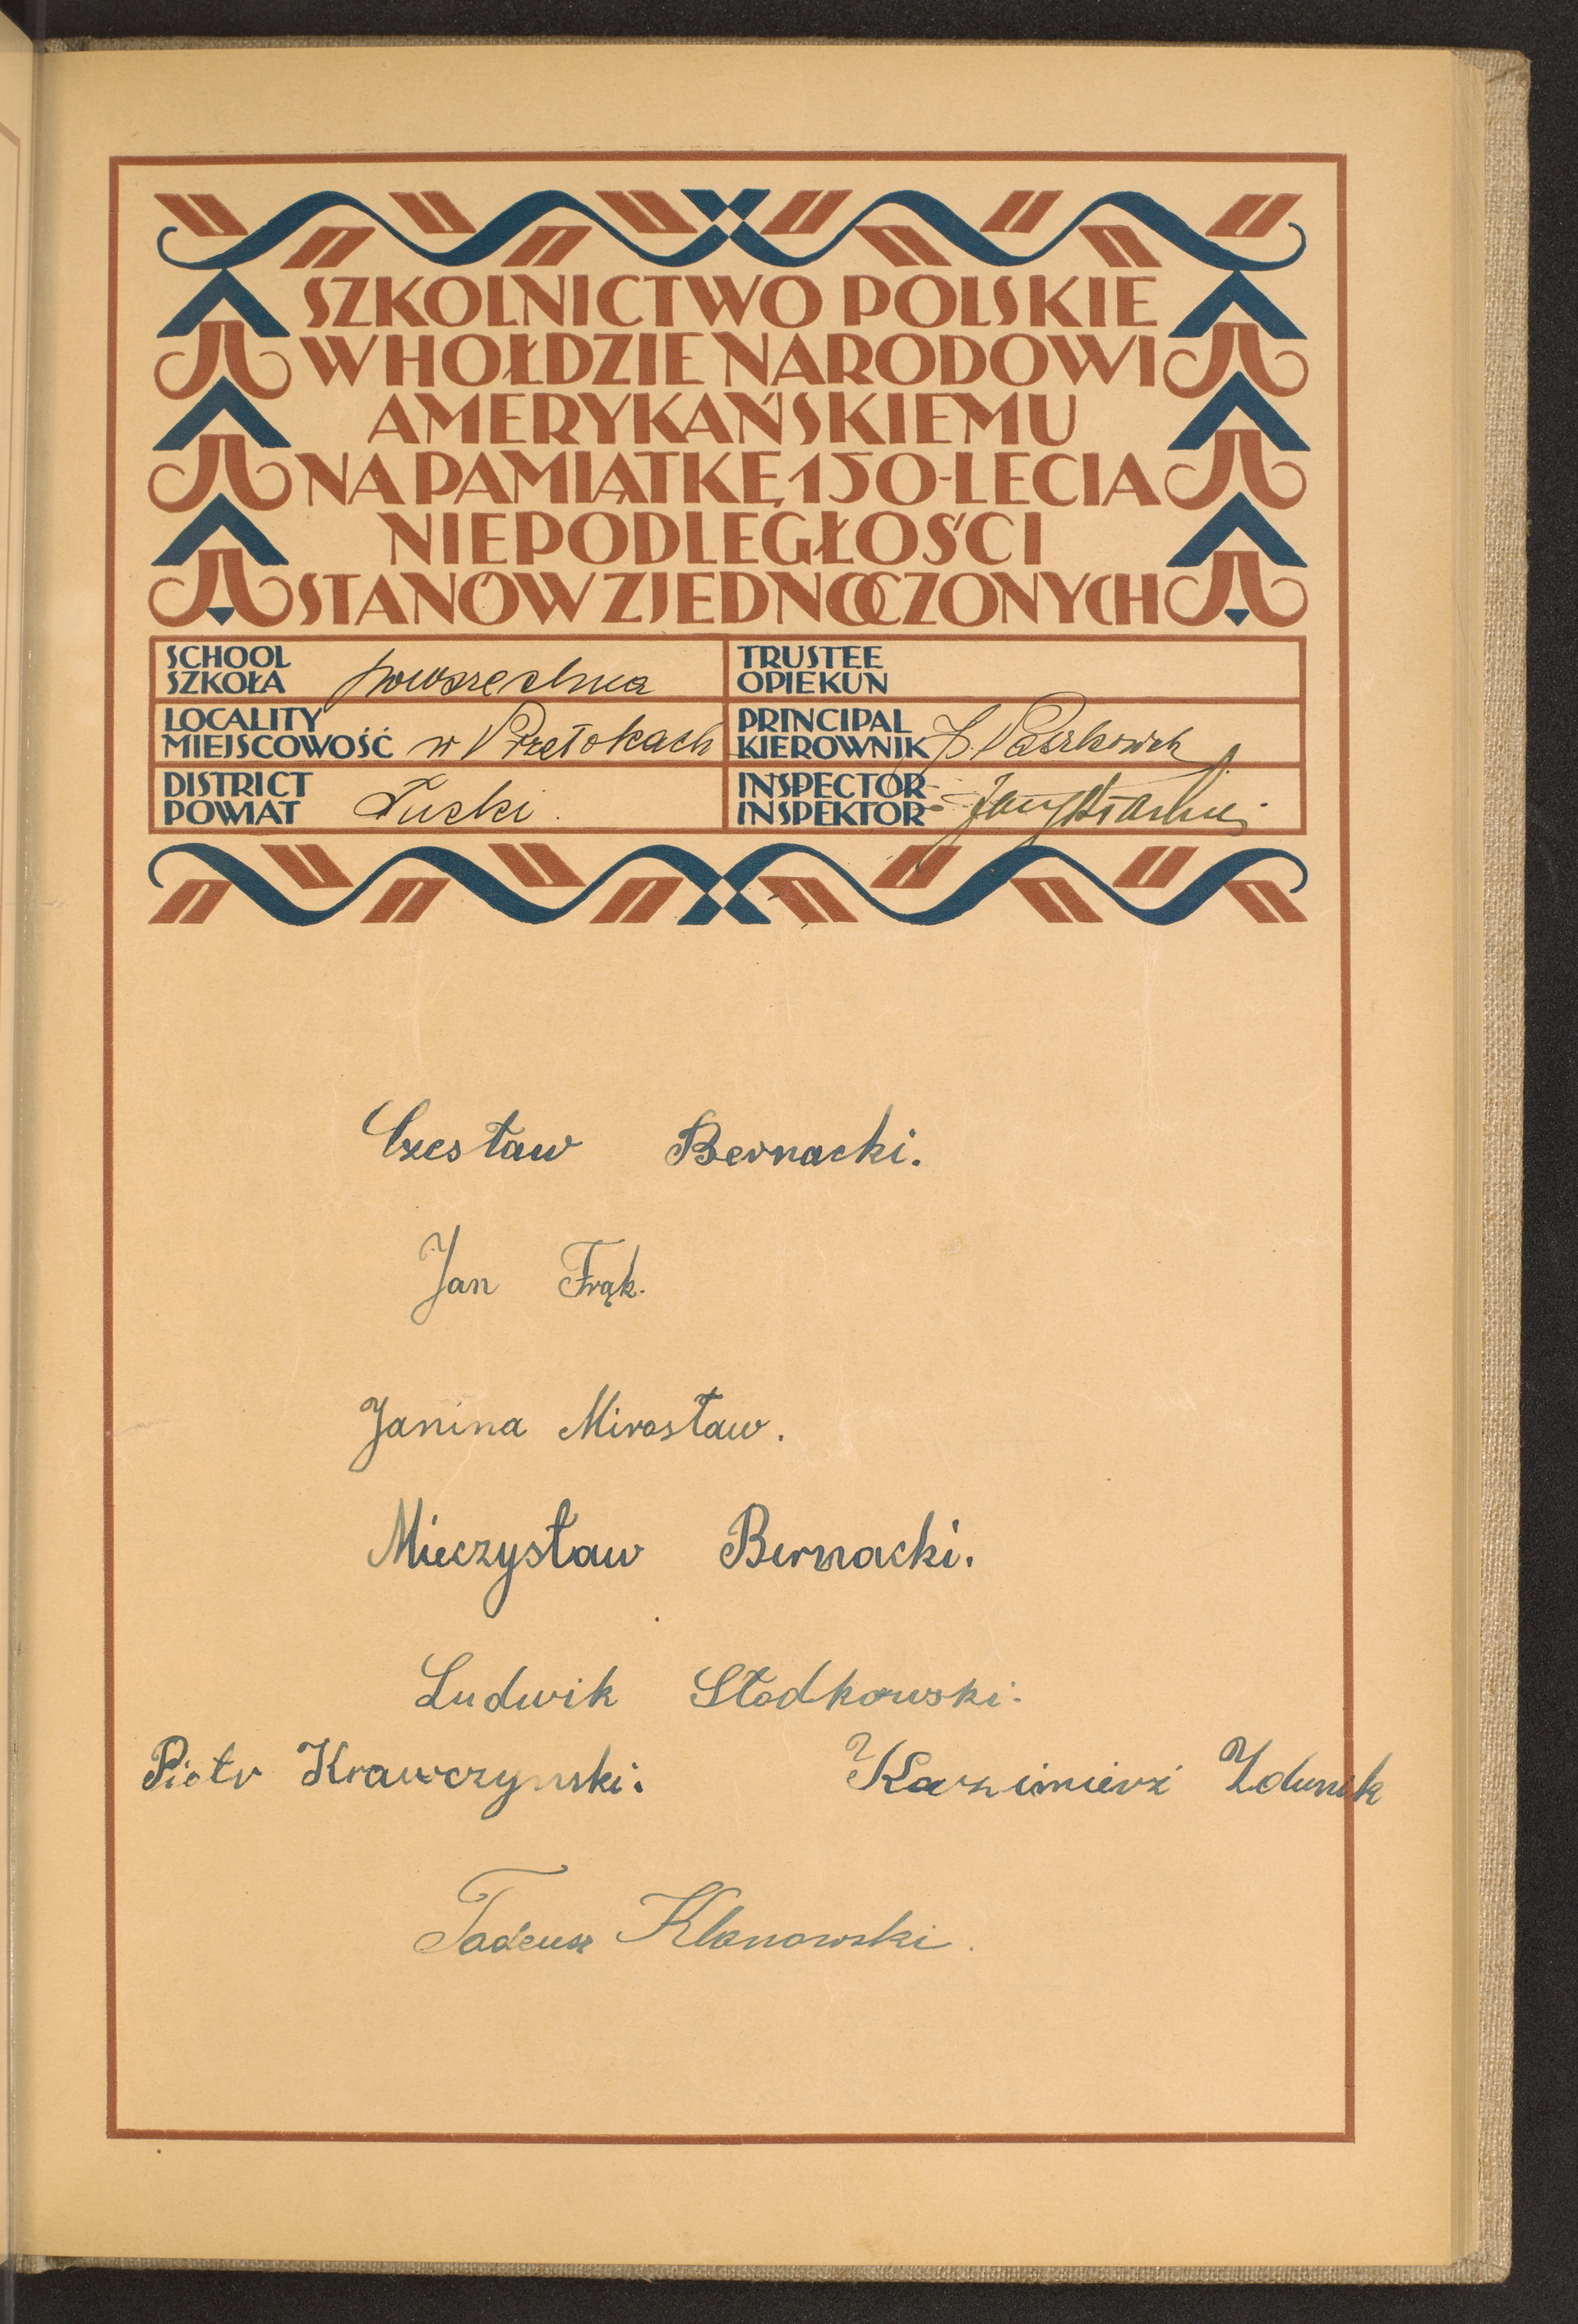 SZKOLNICTWO POLSKIE
W HOŁDZIE NARODOWI
AMERYKAŃSKIEMU
NA PAMIĄTKĘ 150-LECIA
NIEPODLEGŁOŚCI
STANÓW ZJEDNOCZONYCH
SCHOOL
SZKOŁA powszechna
TRUSTEE
OPIEKUN
LOCALITY
MIEJSCOWOŚĆ w Przetokach
PRINCIPAL
KIEROWNIK
DISTRICT
POWIAT Łucki.
INSPECTOR
INSPEKTOR
Czesław Bernacki.
Jan Frąk.
Janina Mirosław.
Mieczysław Bernacki.
Ludwik Słodkowski.
Piotr Krawczynski. Kazimierz Zdunik
Tadeusz Klanowski.